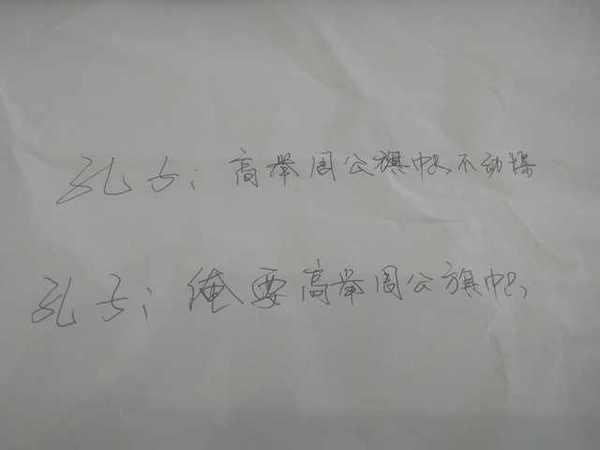 孔子：高举周公旗帜不动摇
孔子：俺要高举周公旗帜，